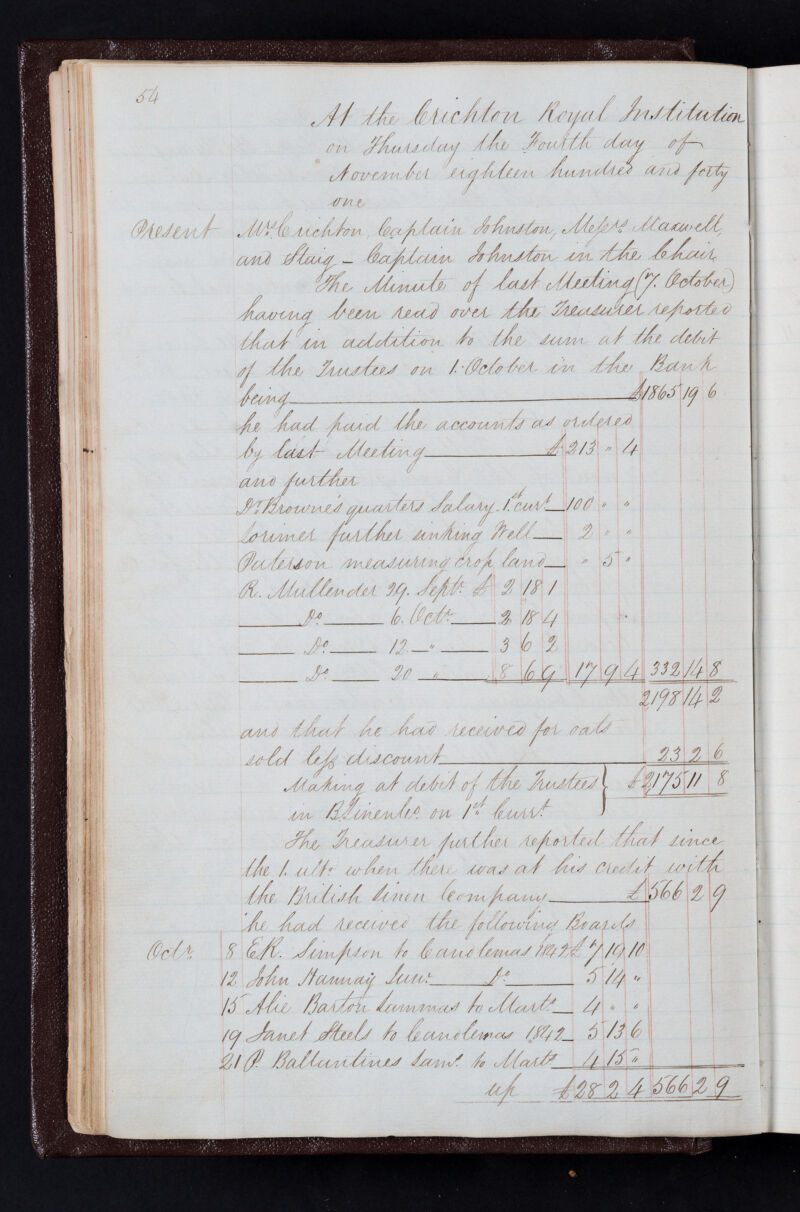 54
At the Crichton Royal Institution
on Thursday the Fourth day of
November eighteen hundred and forty
one
Present Mrs Crichton, Captain Johnston, Messrs Maxwell,
and Staig – Captain Johnston in the Chair
The Minute of last Meeting (7. October)
having been read over the Treasurer reported
that in addition to the sum at the debit
of the Trustees on 1. October in the Bank
being £1865 19 6
he had paid the accounts as ordered
by last Meeting £213 " 4
and further
Dr Browne's quarters Salary 1st curt 100 " "
Lorimer further sinking Well 2 " "
Paterson measuring crop land " 5 "
R. Mullender 29. Septr £ 2 18 1
Do 6. Octr 2 18 4
Do 12 " 3 6 2
Do 20 " 8 6 9 17 9 4 332 14 8
2198 14 2
and that he had received for oats
sold less discount 23 2 6
Making at debit of the Trustees } £2175 11 8
in B Linen Co on 1st Currt
The Treasurer further reported that since
the 1. ulto when there was at his credit with
the British Linen Company £566 2 9
he had received the following Boards
Octr 8 E.R. Simpson to Candlemas 1842 £7 19 10
12 John Hannay Junr Do 5 14 "
15 Alie Barton Lammas to Marts 4 " "
19 Janet Steels to Candlemas 1842 5 13 6
21 P. Ballantines Lams to Marts 4 15 "
up £28 2 4 566 2 9